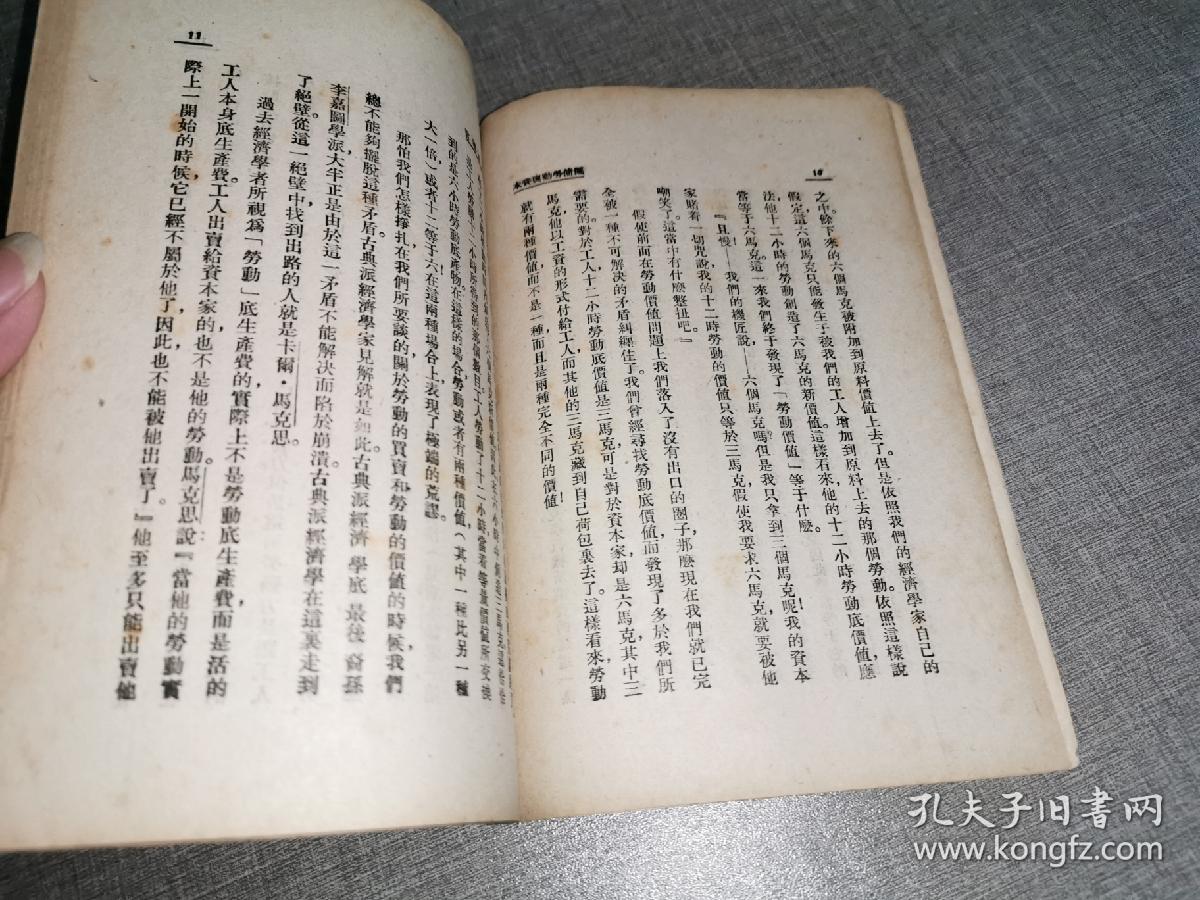 10
僱傭勞動與資本
之中。餘下來的六個馬克被附加到原料價値上去了。但是依照我們的經濟學家自己的
假定這六個馬克只能發生于被我們的工人增加到原料上去的那個勞動。依照這樣說
法，他十二小時的勞動創造了六馬克的新價値。這樣看來，他的十二小時勞動底價値，應
當等于六馬克。這一來我們終于發現了「勞動價値」等于什麽。
『且慢！——我們的機匠說——六個馬克嗎？但是我只拿到三個馬克呢！我的資本
家賭着一切咒說我的十二時勞動的價値只等於三馬克，假使我要求六馬克就要被他
嘲笑了。這當中有什麽蹩扭吧。』
假使前面在勞動價値問題上我們落入了沒有出口的圈子，那麽現在我們就已完
全被一種不可解決的矛盾糾纏住了。我們曾經尋找勞動底價値，而發現了多於我們所
需要的。對於工人，十二小時勞動底價値是三馬克，可是對於資本家却是六馬克，其中三
馬克他以工資的形式付給工人，而其他的三馬克藏到自己荷包裏去了。這樣看來，勞動
就有兩種價値，而不是一種，而且是兩種完全不同的價値！
11
到的是六小時勞動底產物。在這樣的場合，勞動或者有兩種價値，（其中一種比另一種
大一倍）或者十二等于六！在這兩種場合上，表現了極端的荒謬。
那怕我們怎樣掙扎，在我們所要談的關於勞動的買賣和勞動的價値的時候，我們
總不能夠擺脫這種矛盾。古典派經濟學家見解就是如此。古典派經濟學底最後裔孫
李嘉圖學派大半正是由於這一矛盾不能解決而陷於崩潰。古典派經濟學在這裏走到
了絕壁。從這一絕壁中找到出路的人就是卡爾·馬克思。
過去經濟學者所視爲「勞動」底生產費的，實際上不是勞動底生產費，而是活的
工人本身底生產費。工人出賣給資本家的也不是他的勞動。馬克思說：『當他的勞動實
際上一開始的時候，它已經不屬於他了，因此也不能被他出賣了。』他至多只能出賣他
孔夫子旧書网
www.kongfz.com